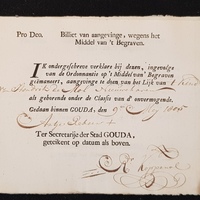 Pro Deo. Billet van aangevinge, wegens het
Middel van 't Begraven.
IK ondergeschreve verklare bij dezen, ingevolge
van de Ordonnantie op 't Middel van Begraven
geëmaneert, aangevinge te doen van het Lijk van 't Kind
van
als gehorende onder de Classis van d' onvermogende.
Gedaan binnen GOUDA, den May
Ter Secretarije der Stad GOUDA,
getekent op datum als boven.